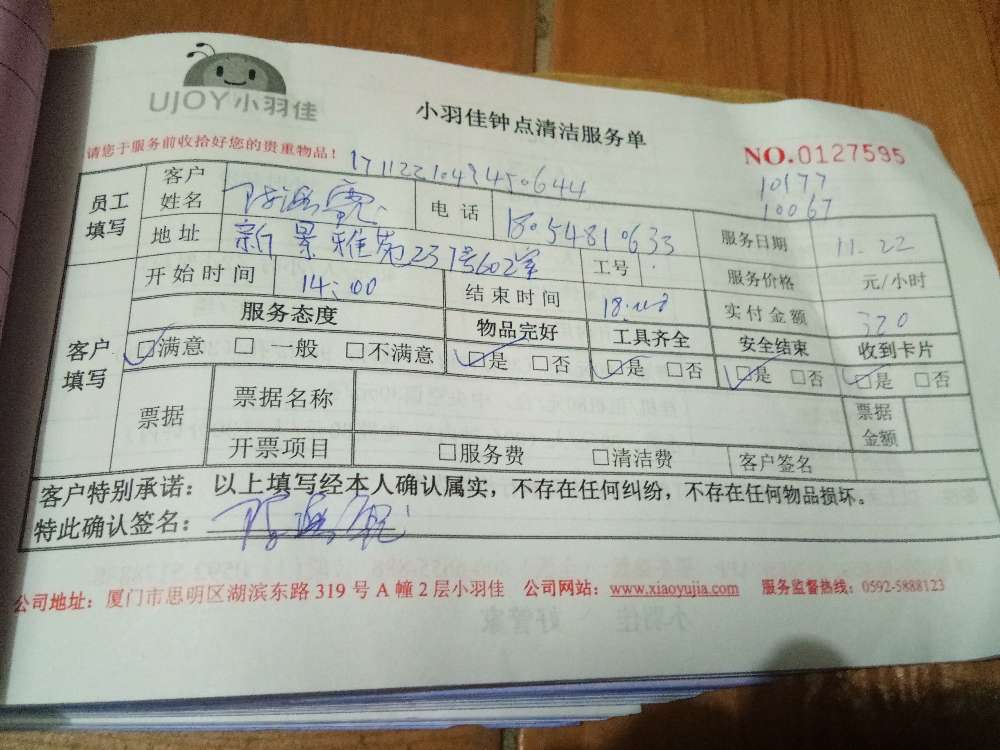 UJOY小羽佳
小羽佳钟点清洁服务单
请您于服务前收拾好您的贵重物品！
NO.0127595
1711221049450644
10177
10067
员工填写 客户姓名 电话 18054810633 服务日期 11.22
地址 新景雅苑237号602室 工号 服务价格 元/小时
开始时间 14:00 结束时间 18:00 实付金额 320
客户填写 服务态度 物品完好 工具齐全 安全结束 收到卡片
□满意 □一般 □不满意 □是 □否 □是 □否 □是 □否 □是 □否
票据 票据名称 票据金额
开票项目 □服务费 □清洁费 客户签名
客户特别承诺：以上填写经本人确认属实，不存在任何纠纷，不存在任何物品损坏。
特此确认签名：
公司地址：厦门市思明区湖滨东路 319 号 A 幢 2 层小羽佳 公司网站：www.xiaoyujia.com 服务监督热线：0592-5888123